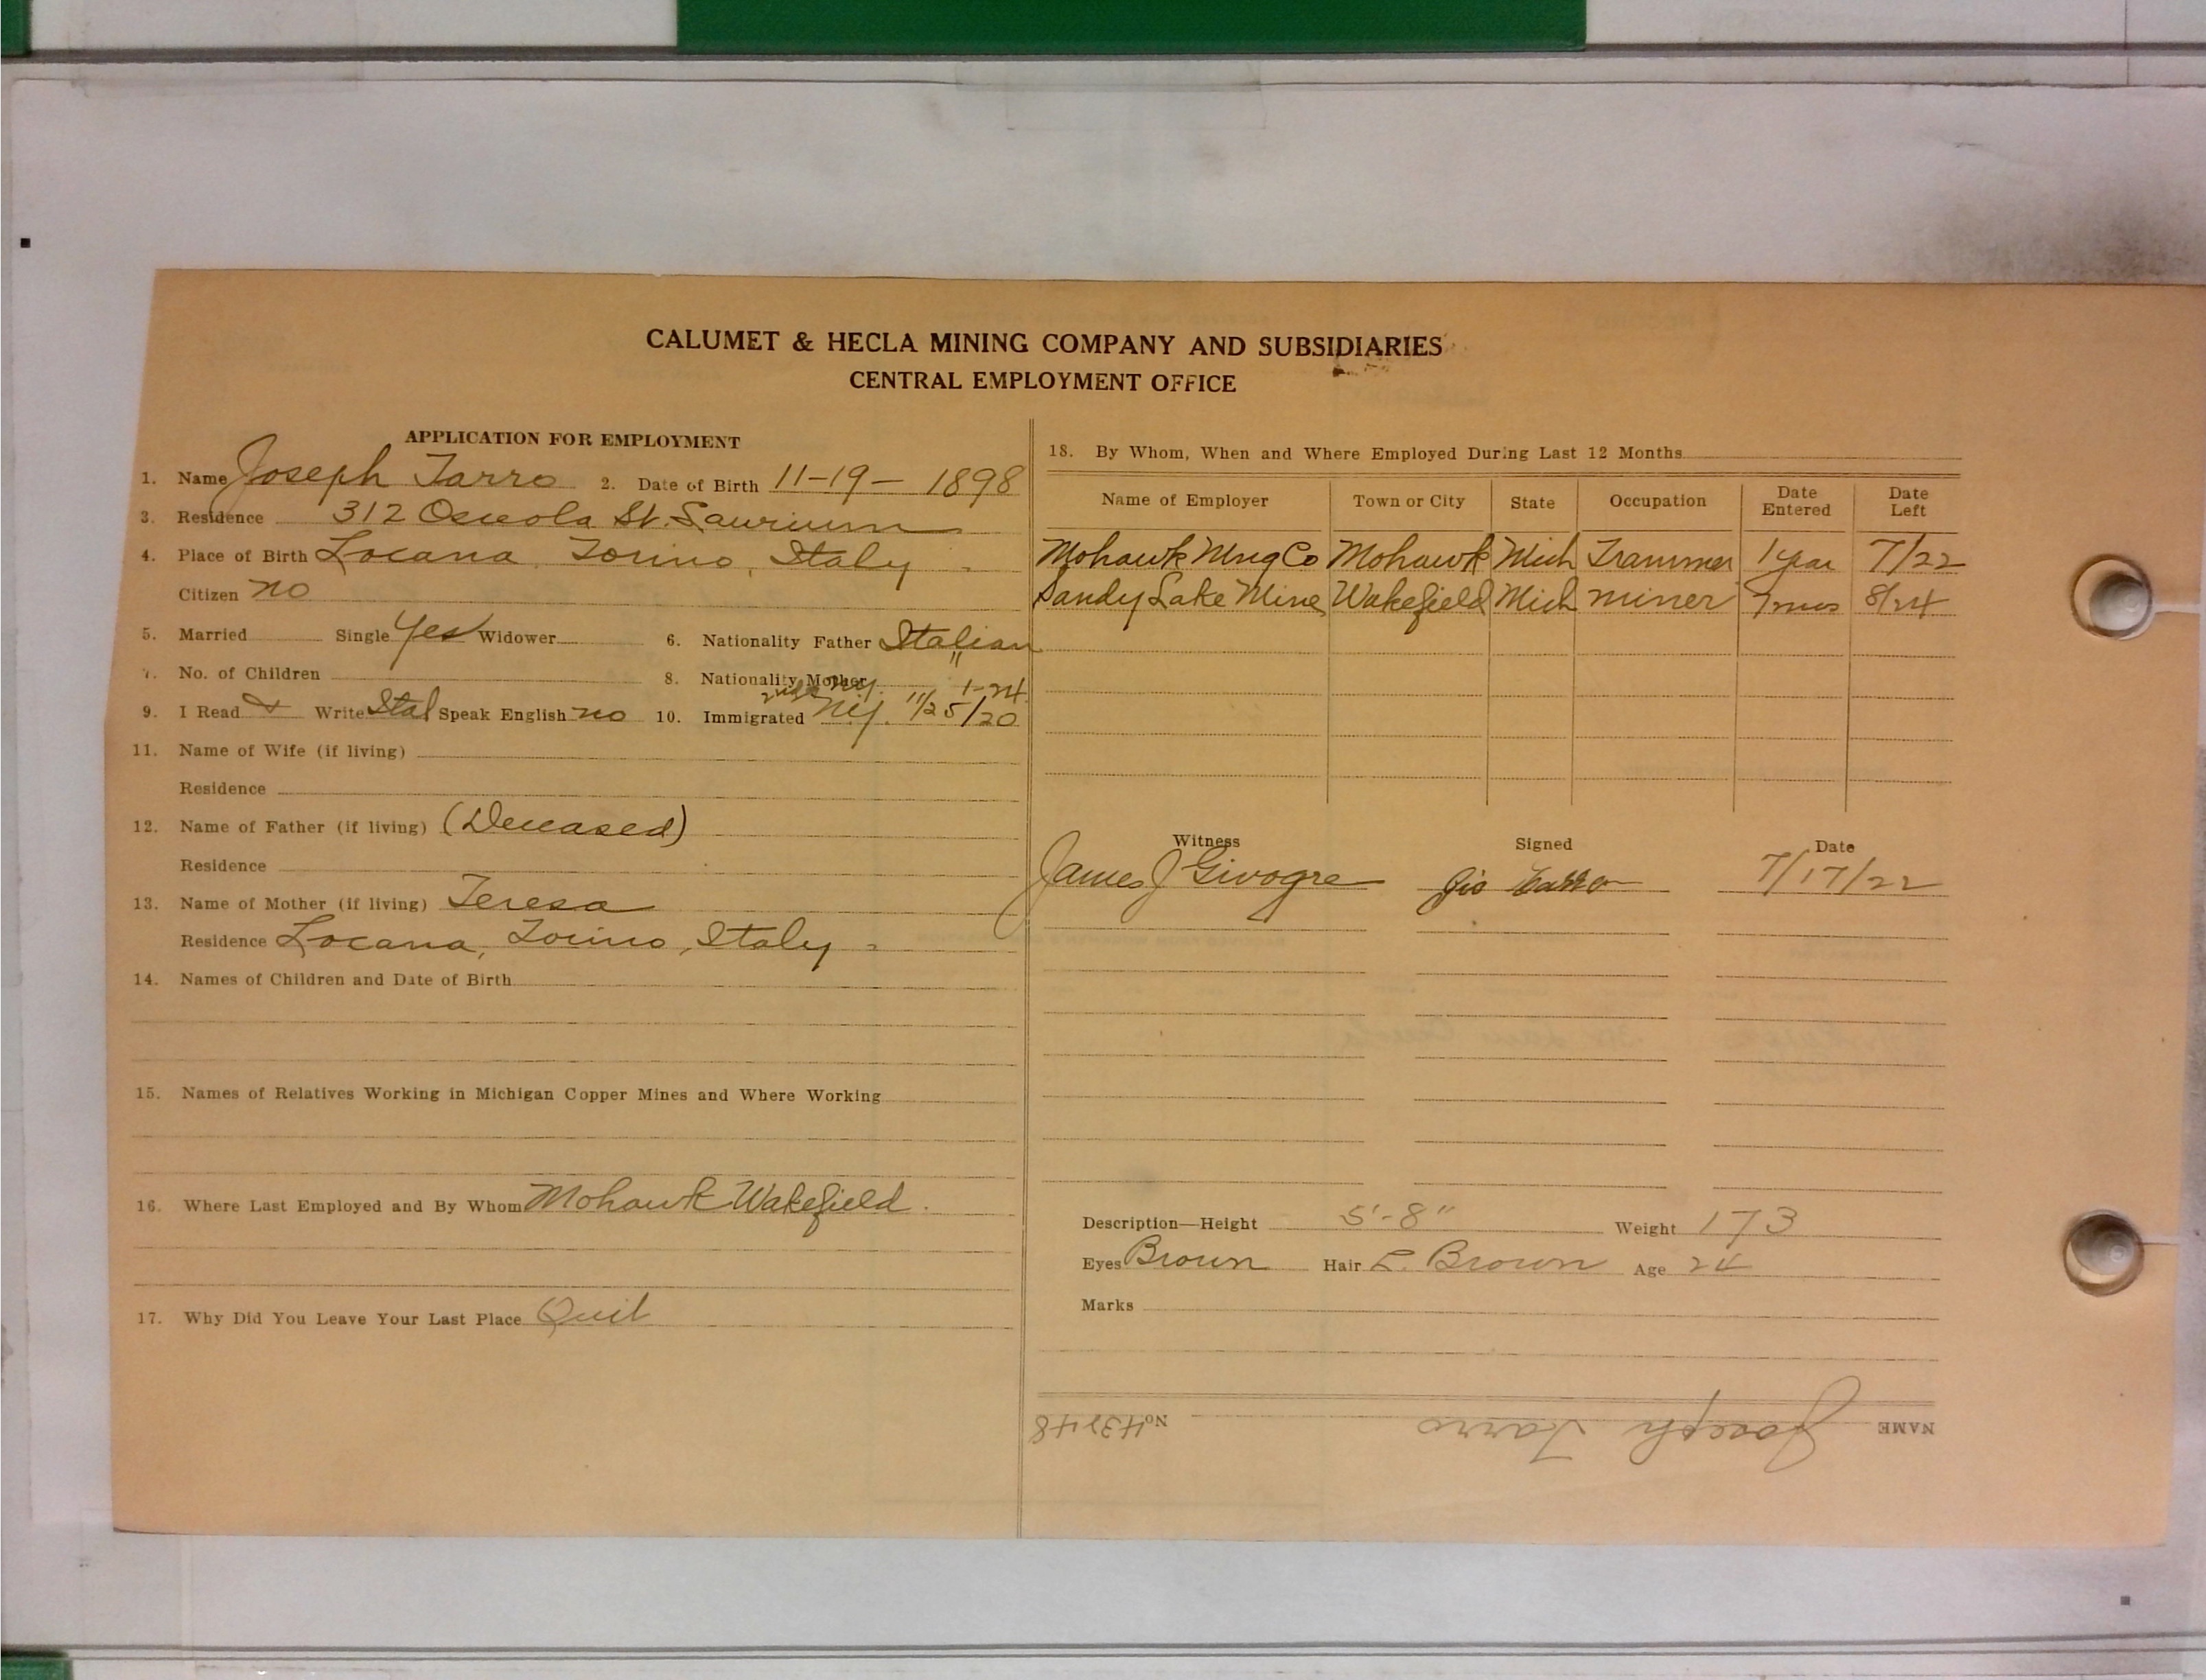 CALUMET & HECLA MINING COMPANY AND SUBSIDIARIES
CENTRAL EMPLOYMENT OFFICE
APPLICATION FOR EMPLOYMENT
1. Name Joseph Tarro 2. Date of Birth 11-19- 1898
3. Residence 312 Osceola St. Laurium
4. Place of Birth Locana, Torino, Italy
Citizen no
5. Married Single Yes Widower 6. Nationality Father Italian
7. No. of Children 8. Nationality Mother "
N.Y. 1-24
9. I Read & Write Ital Speak English no 10. Immigrated N.Y. 11/25/20
11. Name of Wife (if living)
Residence
12. Name of Father (if living) (Deceased)
Residence
13. Name of Mother (if living) Teresa
Residence Locana, Torino, Italy
14. Names of Children and Date of Birth
15. Names of Relatives Working in Michigan Copper Mines and Where Working
16. Where Last Employed and By Whom Mohawk Wakefield.
17. Why Did You Leave Your Last Place Quit
18. By Whom, When and Where Employed During Last 12 Months
Name of Employer Town or City State Occupation Date Entered Date Left
Mohawk Mng Co Mohawk Mich Trammer 1 year 7/22
Sandy Lake Mine Wakefield Mich miner 7 mos 8/24
Witness Signed Date
James J Givogre Jio Tarro 7/17/22
Description—Height 5'-8" Weight 173
Eyes Brown Hair L. Brown Age 24
Marks
NAME Joseph Tarro No.